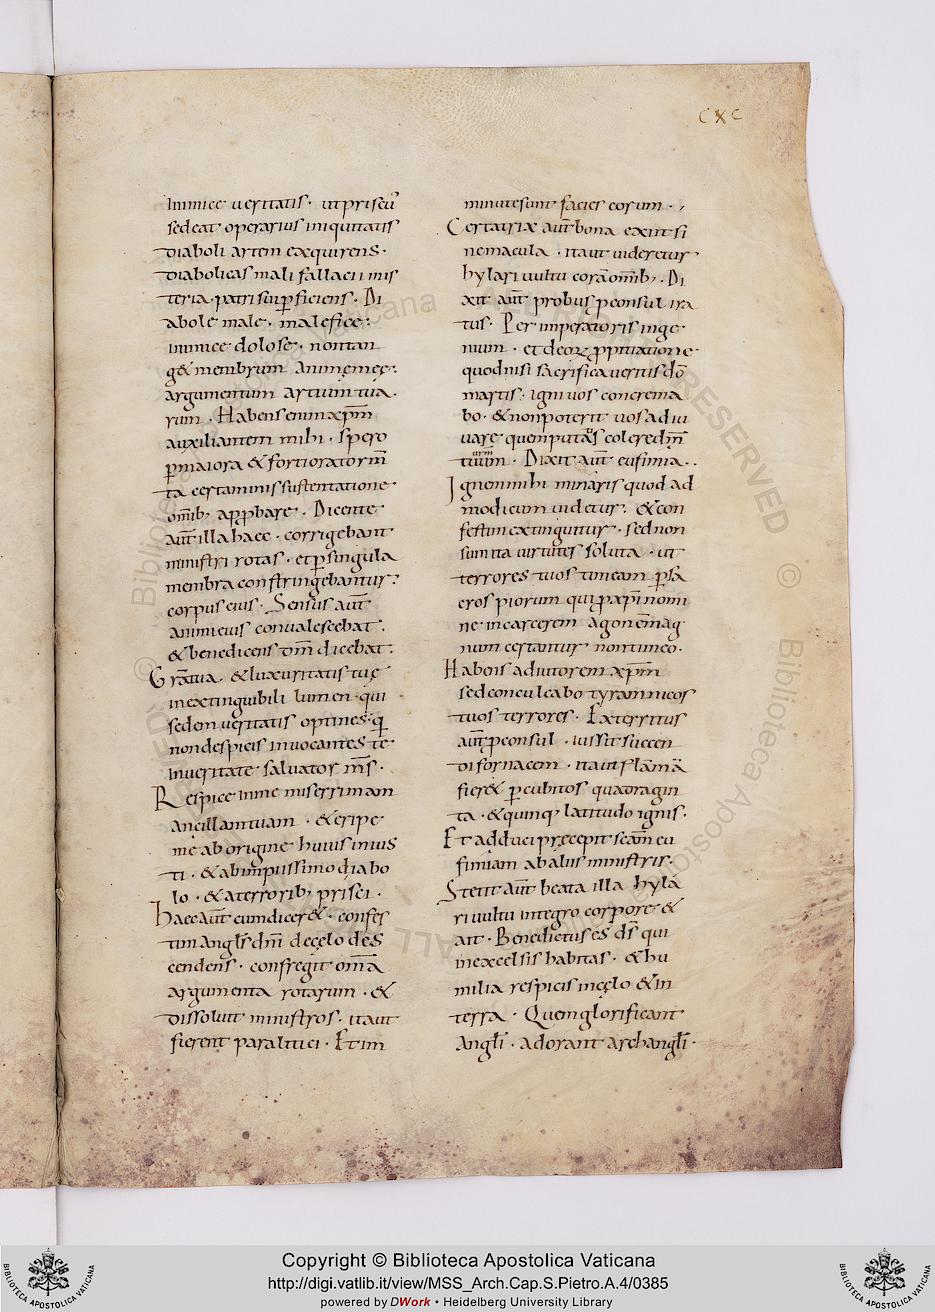 cxc
Inimice ueritatis · ut priscū
sedeat operarius iniquitatis
diaboli artem exquirens ·
diabolicas mali fallacii mis
teria · patri sui pficiens · Di
abole male · malefice ·
inimice dolose · non tan
g& membrum animę meę ·
argumentum artium tua
rum · Habens enim xpm̄
auxiliantem mihi · spero
p maiora & fortiora torm̄
ta certaminis sustentatione
omīb; approbare · Dicente
aut̄ illa haec · corrigebant
ministri rotas · et p singula
membra constringebantur
corpus eius · Sensus aut̄
animi eius conualescebat ·
& benedicens dm̄ dicebat ·
inextinguibili lumen · qui
sedem ueritatis optines · q
non despicis inuocantes te ·
in ueritate saluator m̄s ·
Respice in me miserrimam
ancillam tuam · & eripe
me ab origine huius inius
ti · & ab impiissimo diabo
lo · & a terrorib; prisci ·
Haec aut̄ cum dicer& · confes
tim angls̄ dn̄i de cęlo des
cendens · confregit om̄a
argumenta rotarum · &
dissoluit ministros · ita ut
fierent paralitici · Et im
minute sunt facies eorum ·
Certatrix aut̄ bona exiit si
ne macula · ita ut uideretur
hylari uultu corā omīb; · Di
xit aut̄ probus pconsul ira
tus · Per imperatoris inge
nium · et deorꝝ ppitiatione
quod nisi sacrificaueritis dō
martis · igni uos concrema
bo · & non poterit uos adiu
uare quem putas colere dm̄
Dixit aut̄ eufimia ·
Ignem mihi minaris quod ad
modicum uidetur · & con
festim extinguitur · sed non
sum ita uirtutis soluta · ut
terrores tuos timeam
eros piorum qui p xpi nomi
ne in carcerem agonē mag
num certantur non timeo ·
Habens adiutorem xpm̄
sed conculcabo tyrannicos
tuos terrores · Exterritus
aut̄ pconsul · iussit succen
di fornacem · ita ut flāmā
fier& p cubitos quadragin
ta · & quinq; latitudo ignis ·
Et adduci pręcepit scam̄ eu
fimiam ab aliis ministris ·
Stetit aut̄ beata illa hyla
ri uultu integro corpore &
ait · Benedictus es ds̄ qui
in excelsis habitas · & hu
milia respicis in cęlo & in
terra · Quem glorificant
Angli · adorant archangli ·
© Biblioteca Apostolica Vaticana
ALL RIGHTS RESERVED
Copyright © Biblioteca Apostolica Vaticana
http://digi.vatlib.it/view/MSS_Arch.Cap.S.Pietro.A.4/0385
powered by DWork • Heidelberg University Library
BIBLIOTECA APOSTOLICA VATICANA
BIBLIOTECA APOSTOLICA VATICANA